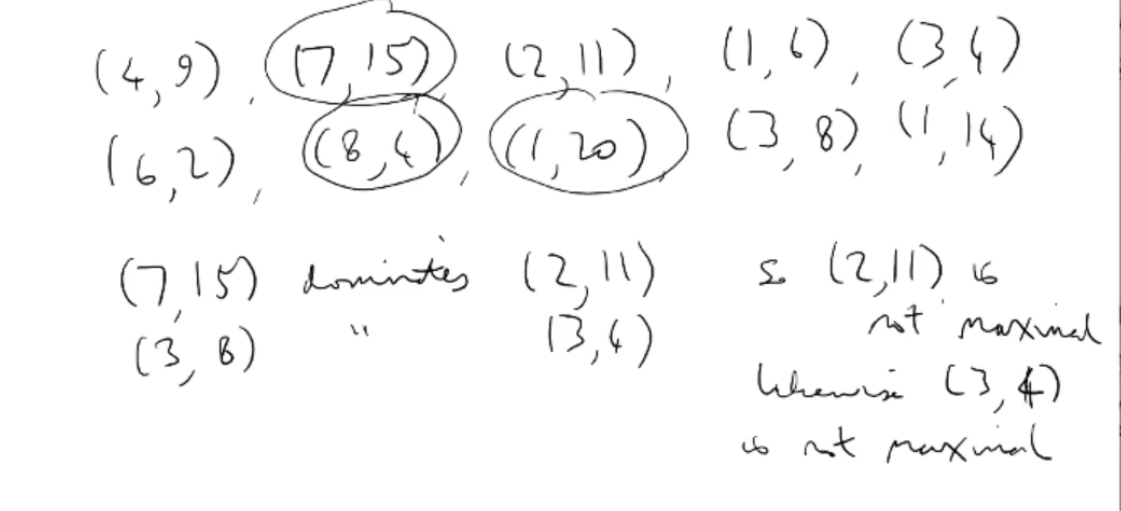 (4,9), (7,15), (2,11), (1,6), (3,4)
(6,2), (8,4), (1,20) (3,8), (1,14)
(7,15) dominates (2,11) so (2,11) is
not maximal
(3,8) " (3,4)
likewise (3,4)
is not maximal